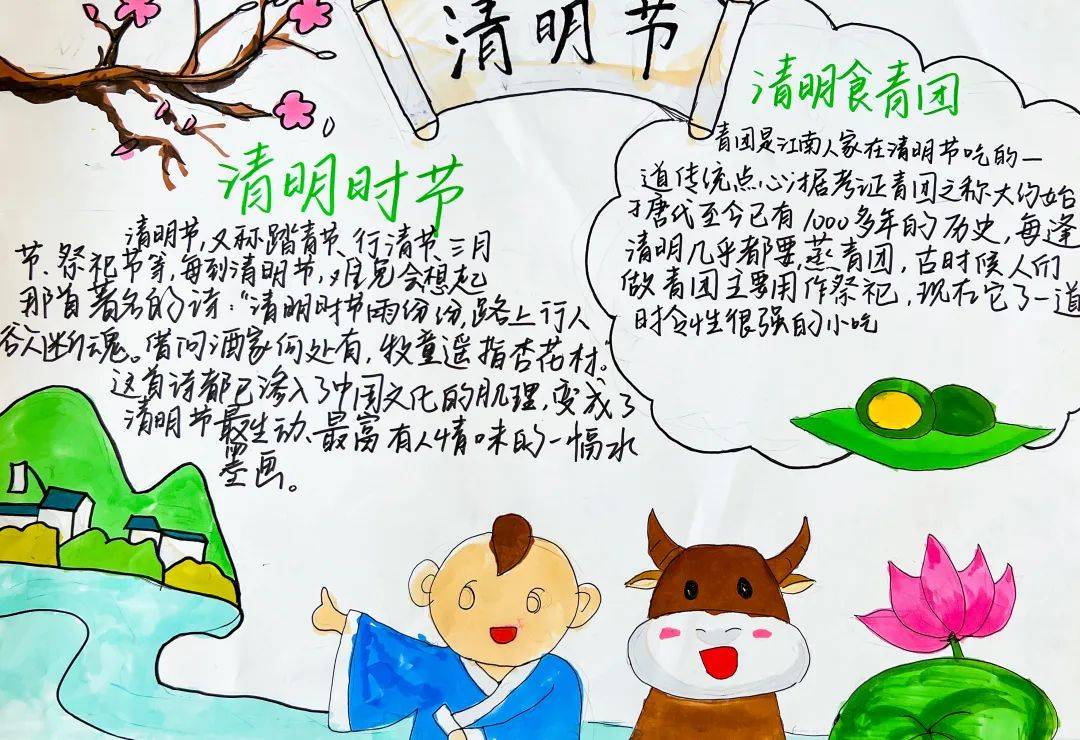 清明节
清明时节
清明节,又称踏青节、行清节、三月
节、祭祀节等,每到清明节,难免会想起
那首著名的诗:“清明时节雨份份,路上行人
欲断魂。借问酒家何处有,牧童遥指杏花村。”
这首诗都已渗入了中国文化的肌理,变成了
清明节最生动、最富有人情味的一幅水
墨画。
清明食青团
青团是江南人家在清明节吃的一
道传统点心,据考证青团之称大约始
于唐代至今已有1000多年的历史,每逢
清明几乎都要蒸青团,古时候人们
做青团主要用作祭祀,现在它了一道
时令性很强的小吃